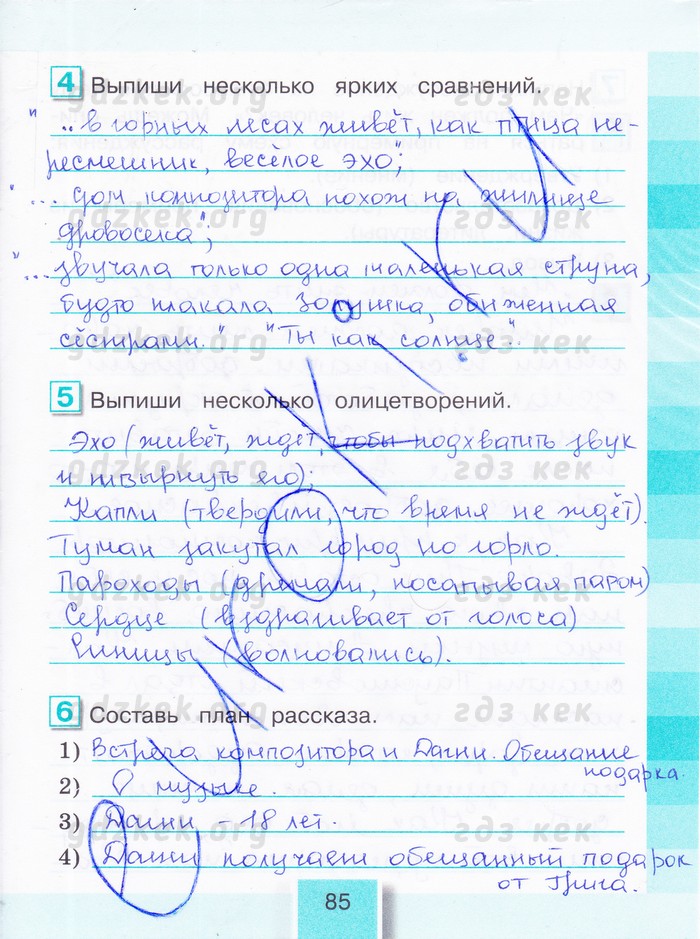 4 Выпиши несколько ярких сравнений.
"... в горных лесах живёт, как птица пе-
ресмешник, весёлое эхо";
"... дом композитора похож на жилище
дровосека";
"... звучала только одна маленькая струна,
будто плакала Золушка, обиженная
сёстрами." "Ты как солнце".
5 Выпиши несколько олицетворений.
Эхо (живёт, ждёт, чтобы подхватить звук
и швырнуть его);
Капли (твердили, что время не ждёт).
Туман закутал город по горло.
Пароходы (дремали, посапывая паром)
Сердце (вздрагивает от голоса)
Синицы (волновались).
6 Составь план рассказа.
1) Встреча композитора и Дагни. Обещание
подарка.
2) О музыке.
3) Дагни - 18 лет.
4) Дагни получает обещанный подарок
от Грига.
85
gdzkek.org гдз кек
gdzkek.org гдз кек
gdzkek.org гдз кек
gdzkek.org гдз кек
gdzkek.org гдз кек
gdzkek.org гдз кек
gdzkek.org гдз кек